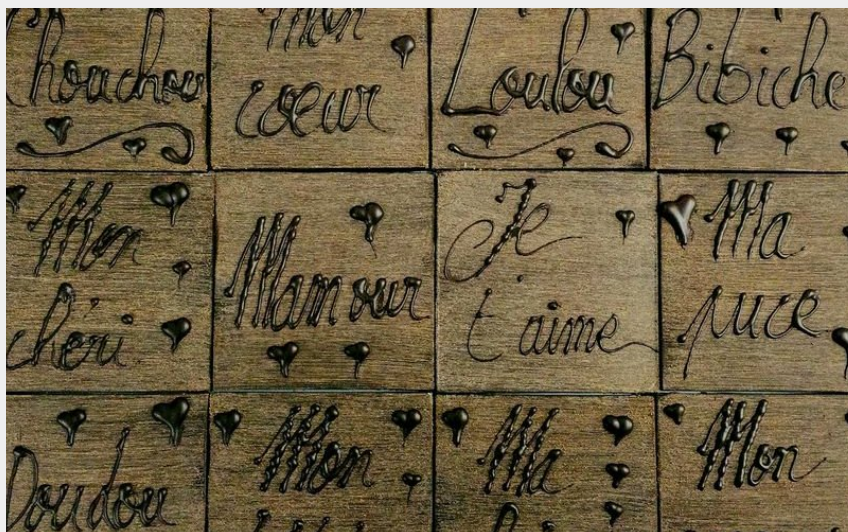 Chouchou
Mon
coeur
Loulou
Bibiche
Mon
chéri
Mamour
Je
t'aime
Ma
puce
Doudou
Mon
Ma
Mon